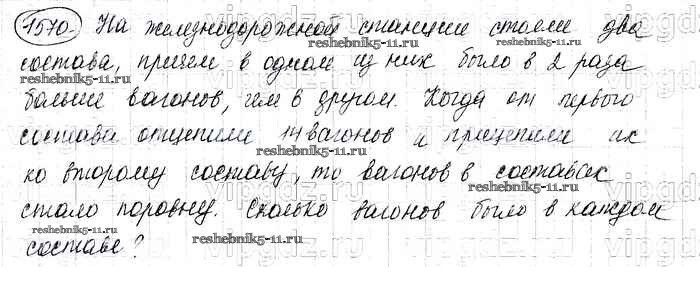 1570. На железнодорожной станции стояли два
состава, причем в одном из них было в 2 раза
больше вагонов, чем в другом. Когда от первого
состава отцепили 14 вагонов и прицепили их
ко второму составу, то вагонов в составах
стало поровну. Сколько вагонов было в каждом
составе?
reshebnik5-11.ru
reshebnik5-11.ru
reshebnik5-11.ru
reshebnik5-11.ru
reshebnik5-11.ru
reshebnik5-11.ru
reshebnik5-11.ru
vipgdz.ru